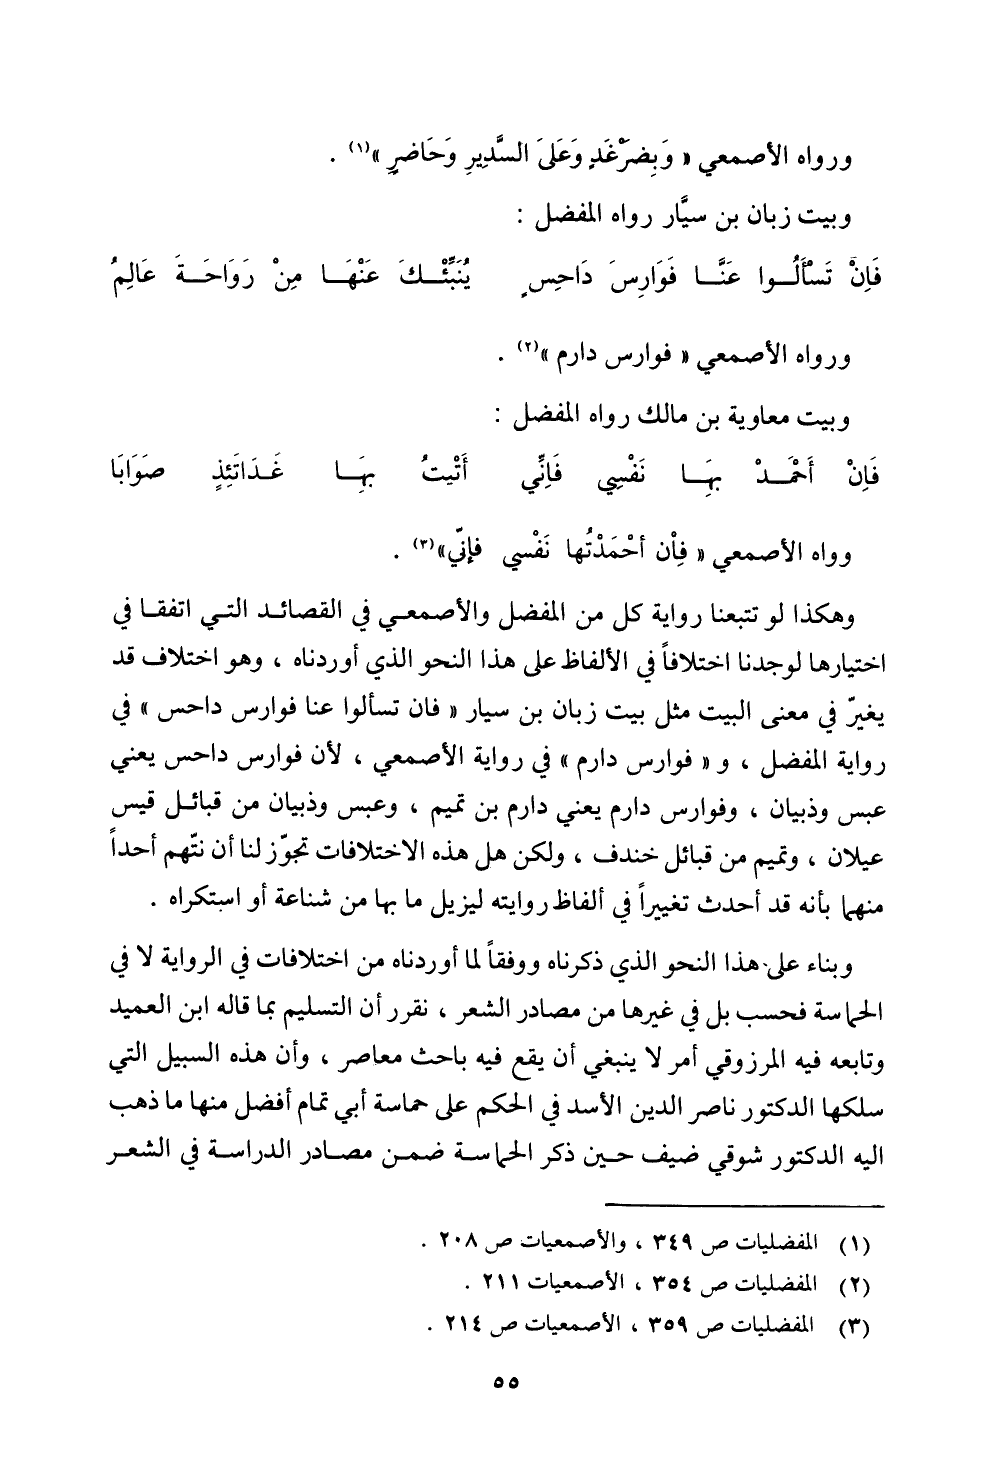 ورواه الأصمعي « وَبِضَرْغَدٍ وَعَلَىَ السَّدِيرِ وَحَاضرٍ »(١) .
وبيت زبان بن سيَّار رواه المفضل :
فَإِنْ تَسْأَلُوا عَنَّا فَوَارِسَ دَاحِسٍ يُنَبِّئْكَ عَنْهَا مِنْ رَوَاحَةَ عَالِمُ
ورواه الأصمعي « فوارس دارم »(٢) .
وبيت معاوية بن مالك رواه المفضل :
فَإِنْ أَحْمَدْ بِهَا نَفْسِي فَإِنِّي أَتْيتُ بِهَا غَدَاتَئِذٍ صَوَابَا
وواه الأصمعي « فإْن أحْمَدْتُها نَفْسي فإنّي»(٣) .
وهكذا لو تتبعنا رواية كل من المفضل والأصمعي في القصائد التي اتفقا في
اختيارها لوجدنا اختلافاً في الألفاظ على هذا النحو الذي أوردناه ، وهو اختلاف قد
يغيرّ في معنى البيت مثل بيت زبان بن سيار « فان تسألوا عنا فوارس داحس » في
رواية المفضل ، و « فوارس دارم » في رواية الأصمعي ، لأن فوارس داحس يعني
عبس وذبيان ، وفوارس دارم يعني دارم بن تميم ، وعبس وذبيان من قبائل قيس
عيلان ، وتميم من قبائل خندف ، ولكن هل هذه الاختلافات تجوّز لنا أن نتّهم أحداً
منهما بأنه قد أحدث تغييراً في ألفاظ روايته ليزيل ما بها من شناعة أو استكراه .
وبناء على هذا النحو الذي ذكرناه ووفقاً لما أوردناه من اختلافات في الرواية لا في
الحماسة فحسب بل في غيرها من مصادر الشعر ، نقرر أن التسليم بما قاله ابن العميد
وتابعه فيه المرزوقي أمر لا ينبغي أن يقع فيه باحث معاصر ، وأن هذه السبيل التي
سلكها الدكتور ناصر الدين الأسد في الحكم على حماسة أبي تمام أفضل منها ما ذهب
اليه الدكتور شوقي ضيف حين ذكر الحماسة ضمن مصادر الدراسة في الشعر
(١) المفضليات ص ٣٤٩ ، والأصمعيات ص ٢٠٨ .
(٢) المفضليات ص ٣٥٤ ، الأصمعيات ٢١١ .
(٣) المفضليات ص ٣٥٩ ، الأصمعيات ص ٢١٤ .
٥٥